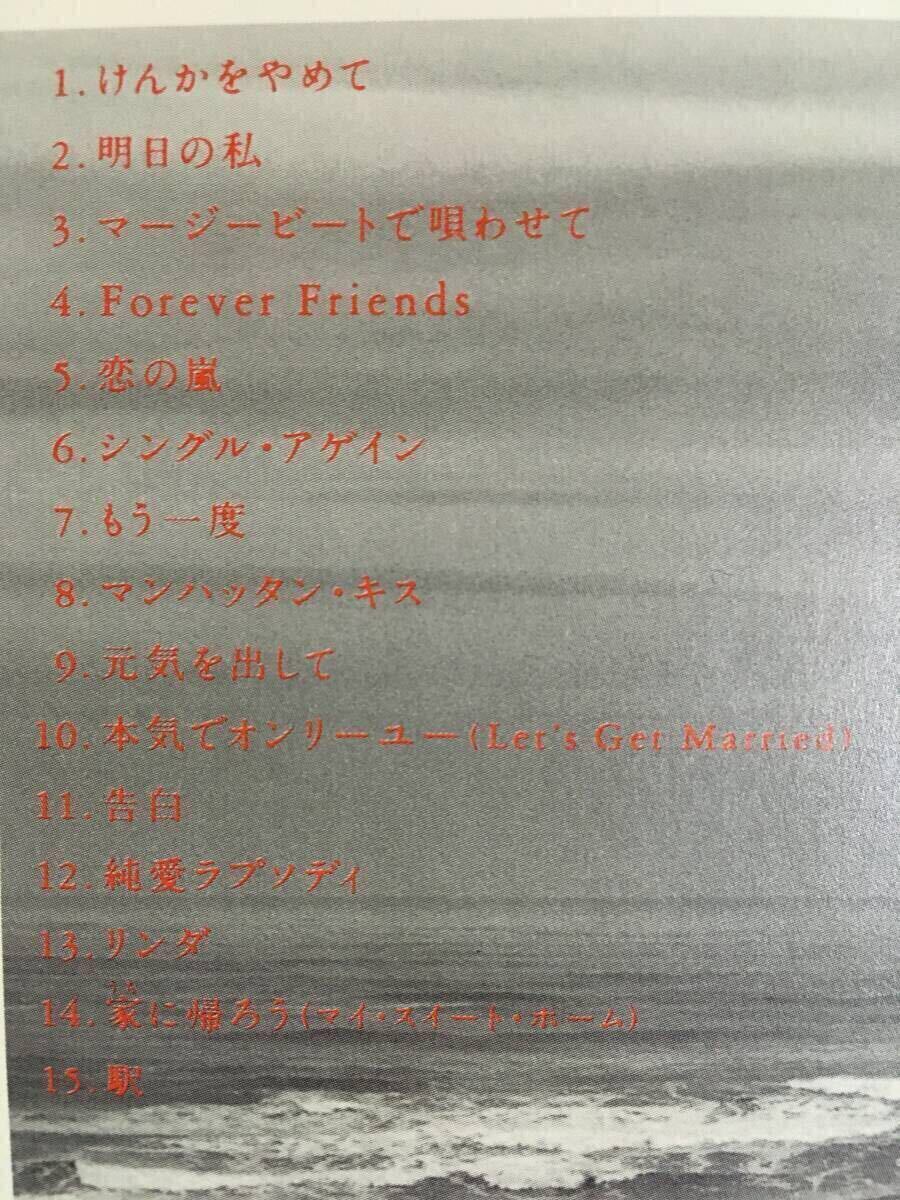 1.けんかをやめて
2.明日の私
3.マージービートで唄わせて
4.Forever Friends
5.恋の嵐
6.シングル・アゲイン
7.もう一度
8.マンハッタン・キス
9.元気を出して
10.本気でオンリーユー(Let's Get Married)
11.告白
12.純愛ラプソディ
13.リンダ
うち
14.家に帰ろう(マイ・スイート・ホーム)
15.駅